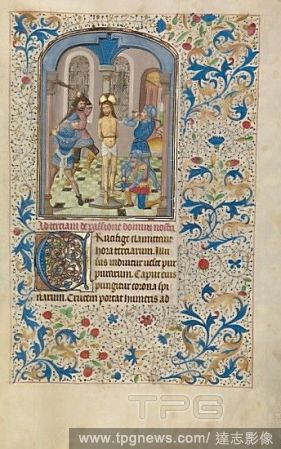 Ad terciam de passione domini nostri
CRucifige clamitant
hora terciarum. Illu
sus induitur veste pur
purarum. Caput eius
pungitur corona spi
narum. Crucem portat humeris ad
TPG
www.tpgnews.com/ 達志影像